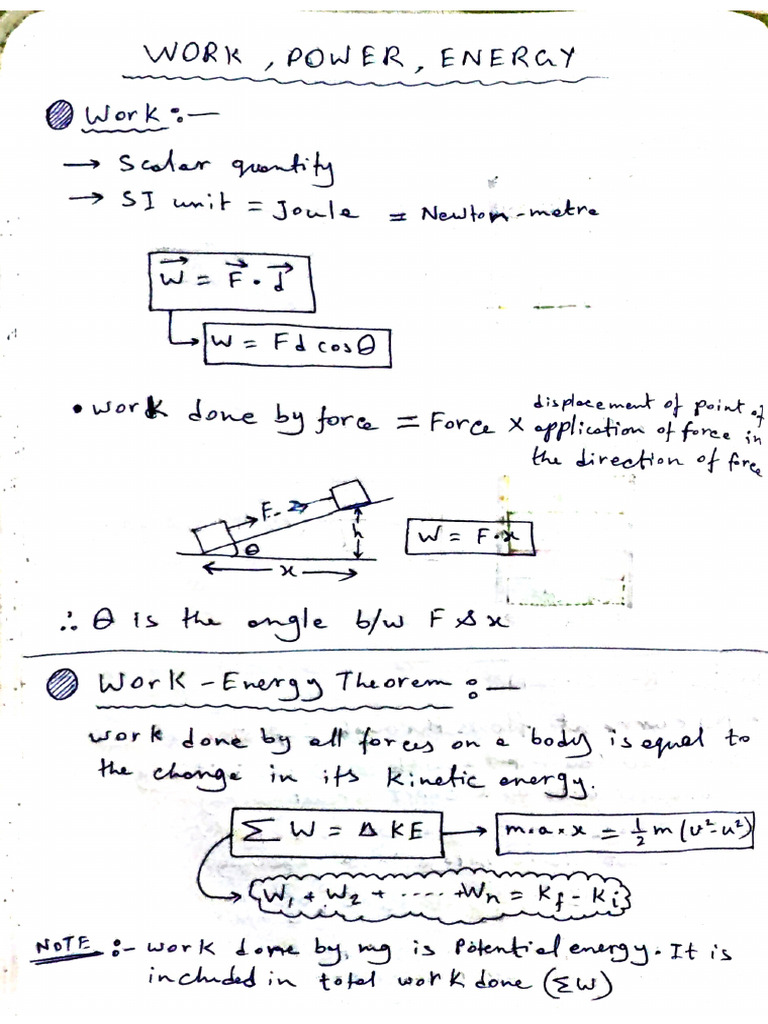 WORK, POWER, ENERGY
Work :—
→ Scalar quantity
→ SI unit = Joule = Newton-metre
W⃗ = F⃗ · d⃗
W = Fd cosθ
• work done by force = Force × displacement of point of
application of force in
the direction of force
F
θ
h
x
W = F·x
∴ θ is the angle b/w F & x
Work-Energy Theorem :—
work done by all forces on a body is equal to
the change in its kinetic energy.
Σ W = Δ KE → m·a·x = ½ m (v²-u²)
W₁ + W₂ + ..... + Wₙ = Kf - Ki
NOTE :- work done by mg is Potential energy. It is
included in total work done (ΣW)